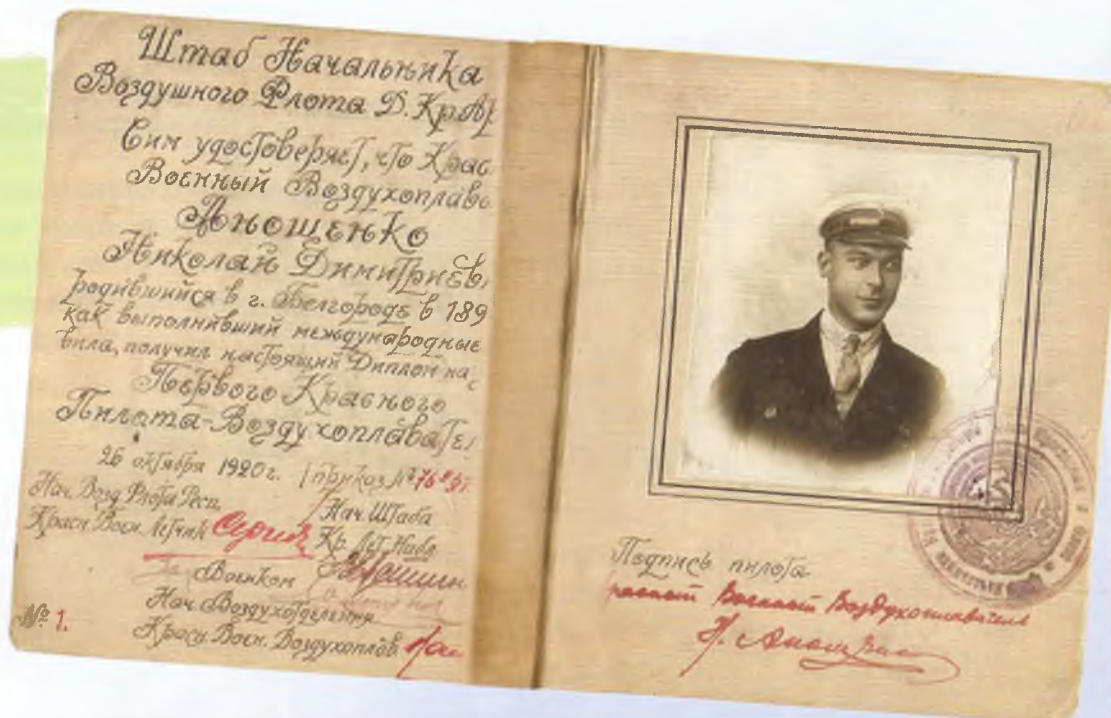 Штаб Начальника
Воздушного Флота Д. Кр. Ар
Сим удостоверяет, что Крас
Военный Воздухоплава
Аношенко
Николай Димитриев
родившийся в г. Белгороде в 189
как выполнивший международные
вила, получил настоящий Диплом на
Первого Красного
Пилота-Воздухоплавател
26 октября 1920 г. приказ №
Нач. Возд. Флота Респ. Нач. Штаба
Красн. Воен. Летчик Сергеев Кр. Лет. Набл.
Военком
Нач. Воздухотделения
Красн. Воен. Воздухоплав
№ 1.
Подпись пилота
расный Военный Воздухоплаватель
Н. Аношенко